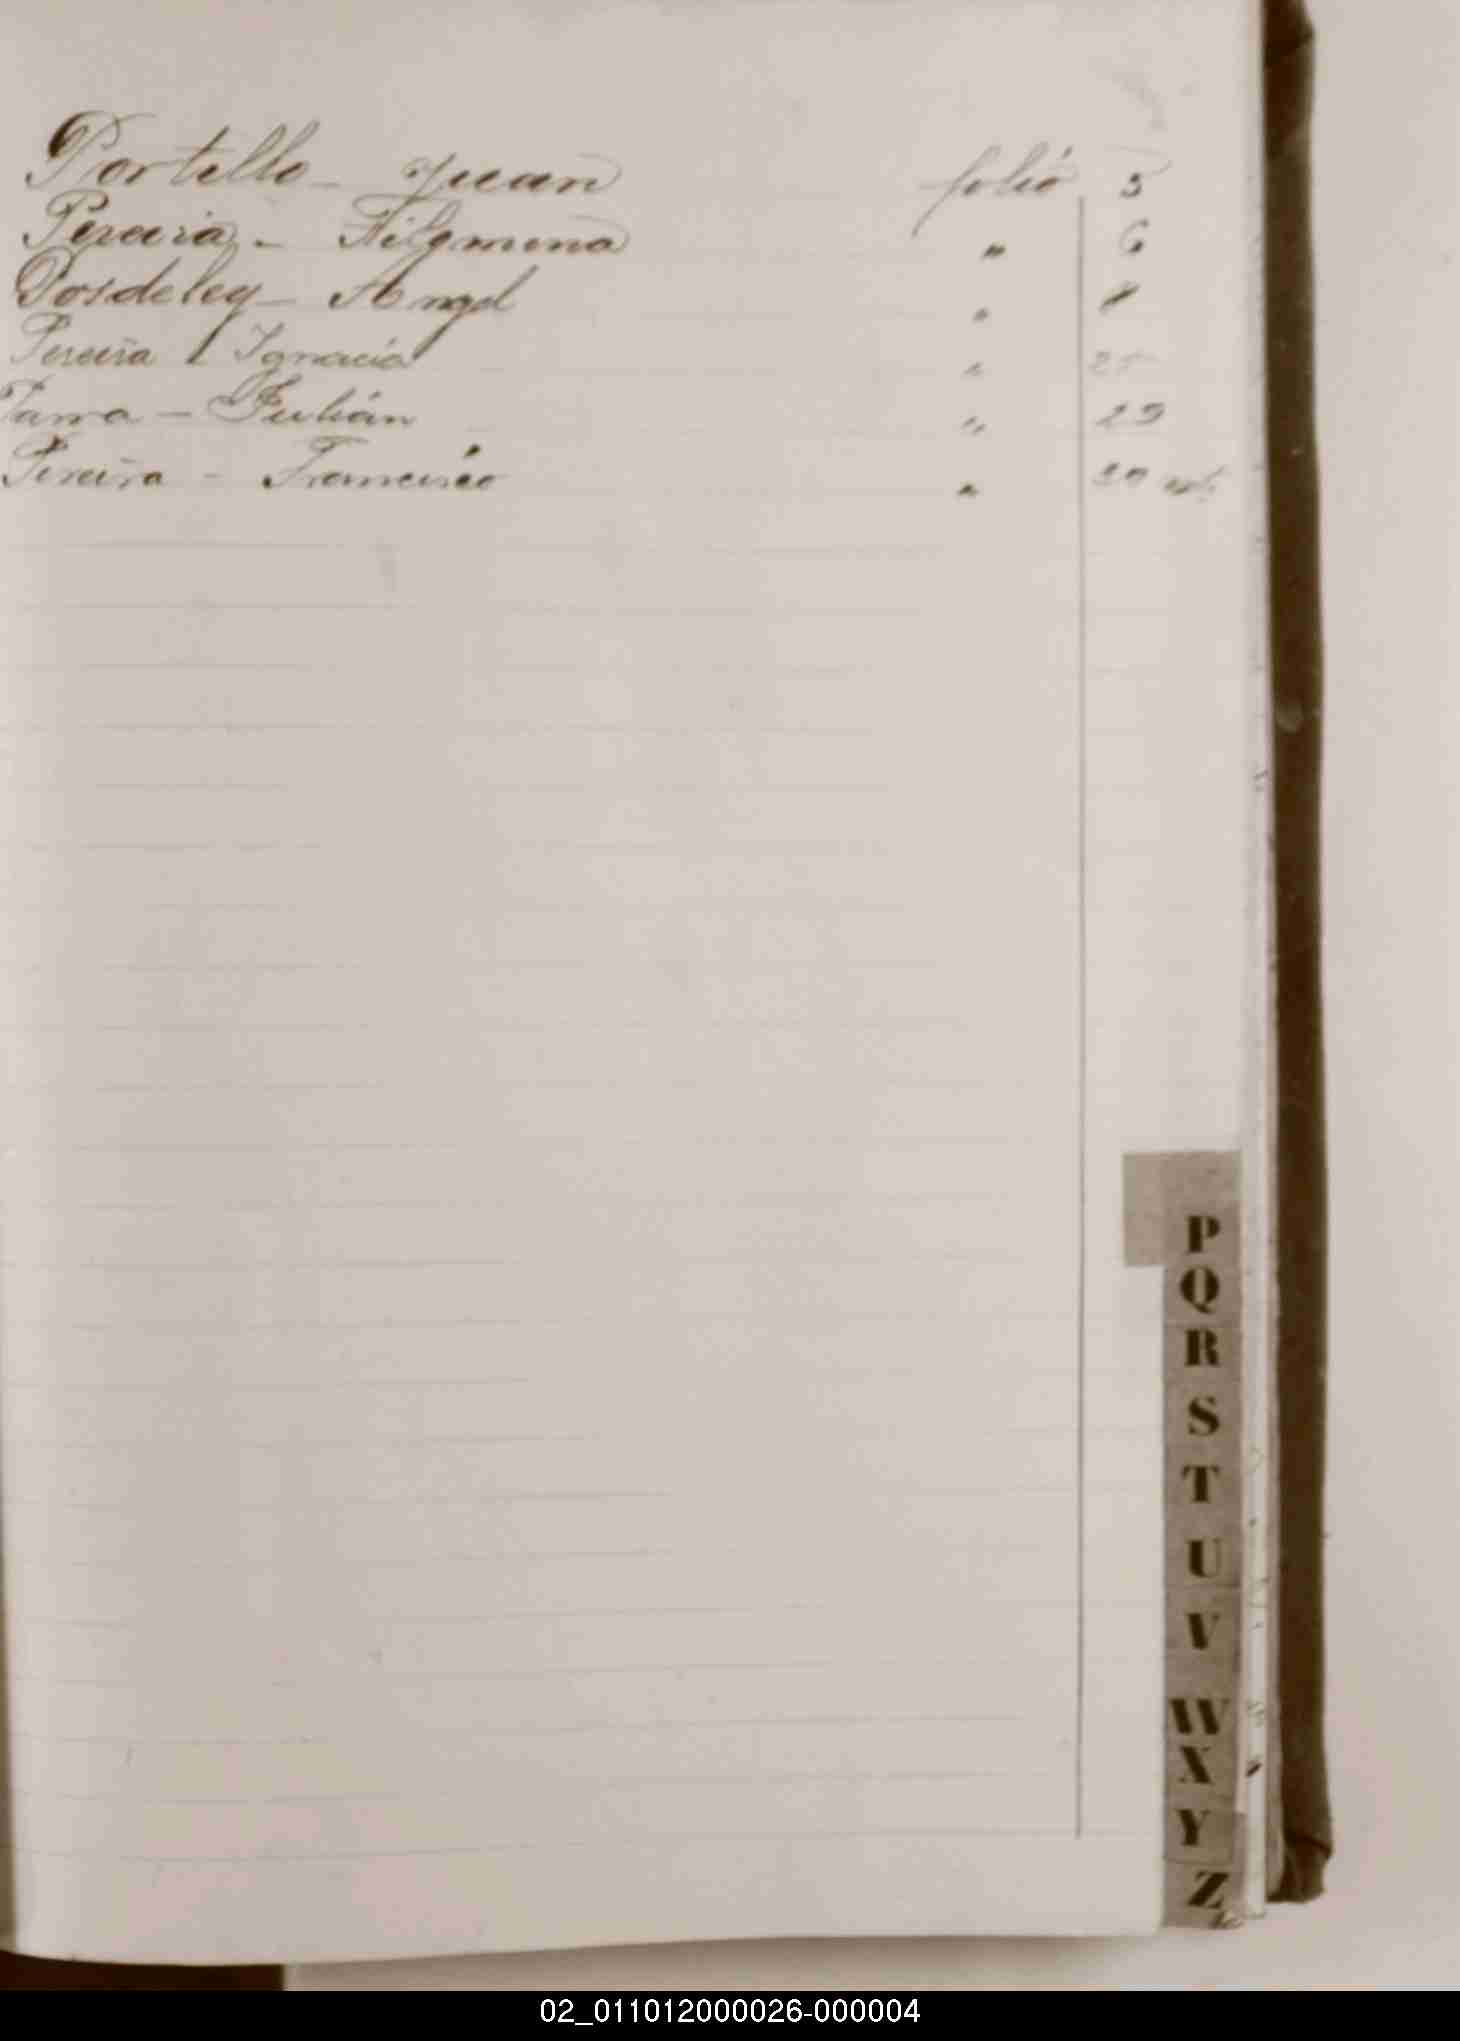 Portillo - Juan folio 5
Pereira - Filomena " 6
Posdeley - Angel "
Pereira Ignacia "
Parra - Julián " 29
Pereira - Francisco "
P
Q
R
S
T
U
V
W
X
Y
Z
02_011012000026-000004